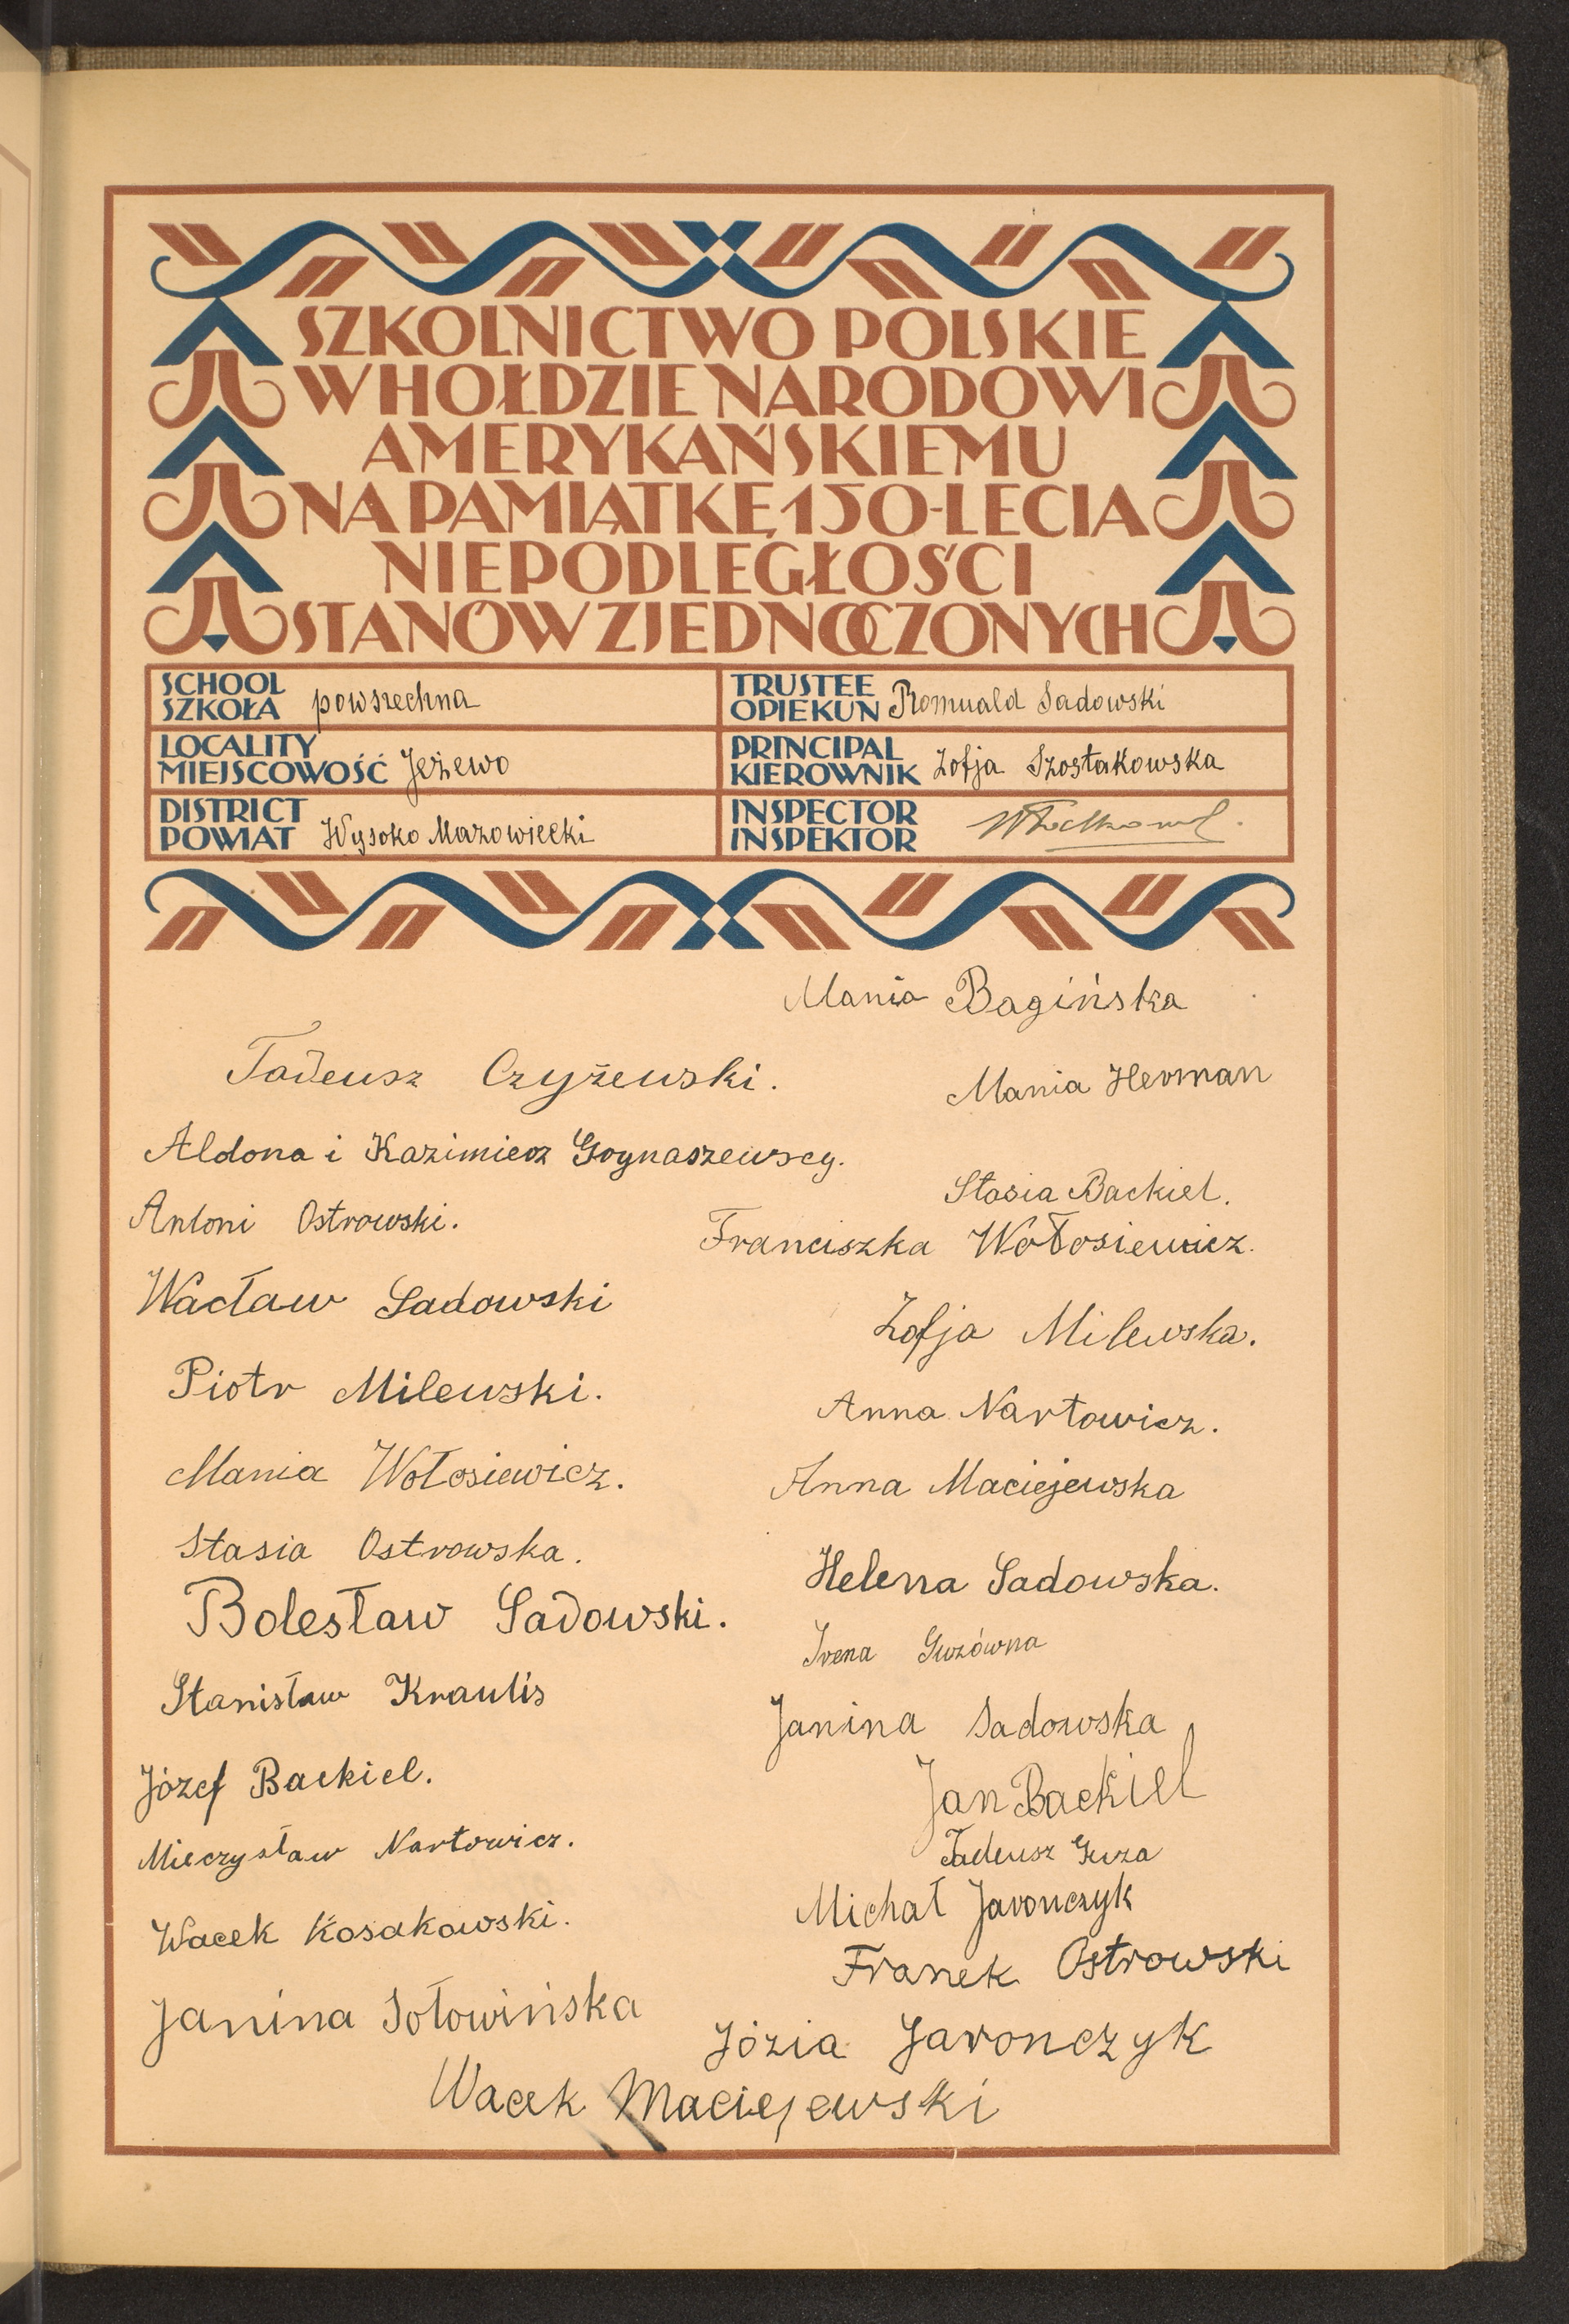 SZKOLNICTWO POLSKIE
W HOŁDZIE NARODOWI
AMERYKAŃSKIEMU
NA PAMIĄTKĘ 150-LECIA
NIEPODLEGŁOŚCI
STANÓW ZJEDNOCZONYCH
SCHOOL
SZKOŁA powszechna
TRUSTEE
OPIEKUN Romuald Sadowski
LOCALITY
MIEJSCOWOŚĆ Jeżewo
PRINCIPAL
KIEROWNIK Zofja Szostakowska
DISTRICT
POWIAT Wysoko Mazowiecki
INSPECTOR
INSPEKTOR
Mania Bagińska
Tadeusz Czyżewski.
Mania Herman
Aldona i Kazimierz Grynaszewscy.
Stasia Backiel.
Antoni Ostrowski.
Franciszka Wołosiewicz.
Wacław Sadowski
Zofja Milewska.
Piotr Milewski.
Anna Nartowicz.
Mania Wołosiewicz.
Anna Maciejewska
Stasia Ostrowska.
Helena Sadowska.
Bolesław Sadowski.
Irena Guzówna
Stanisław Kraulis
Janina Sadowska
Józef Backiel.
Jan Backiel
Mieczysław Nartowicz.
Tadeusz Guza
Michał Jaronczyk
Wacek Kosakowski.
Franek Ostrowski
Janina Sołowińska
Józia Jaronczyk
Wacek Maciejewski